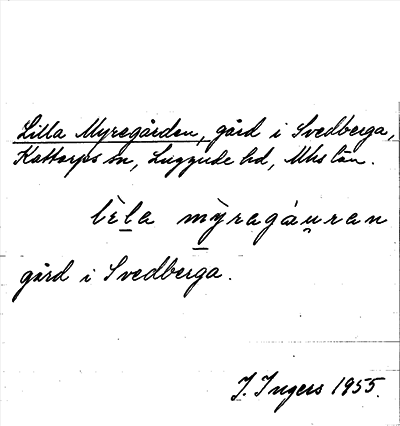 Lilla Myregården, gård i Svedberga,
Kattarps sn, Luggude hd, Mhs län.
lèla mỳragáu̯ran
gård i Svedberga.
I. Ingers 1955.